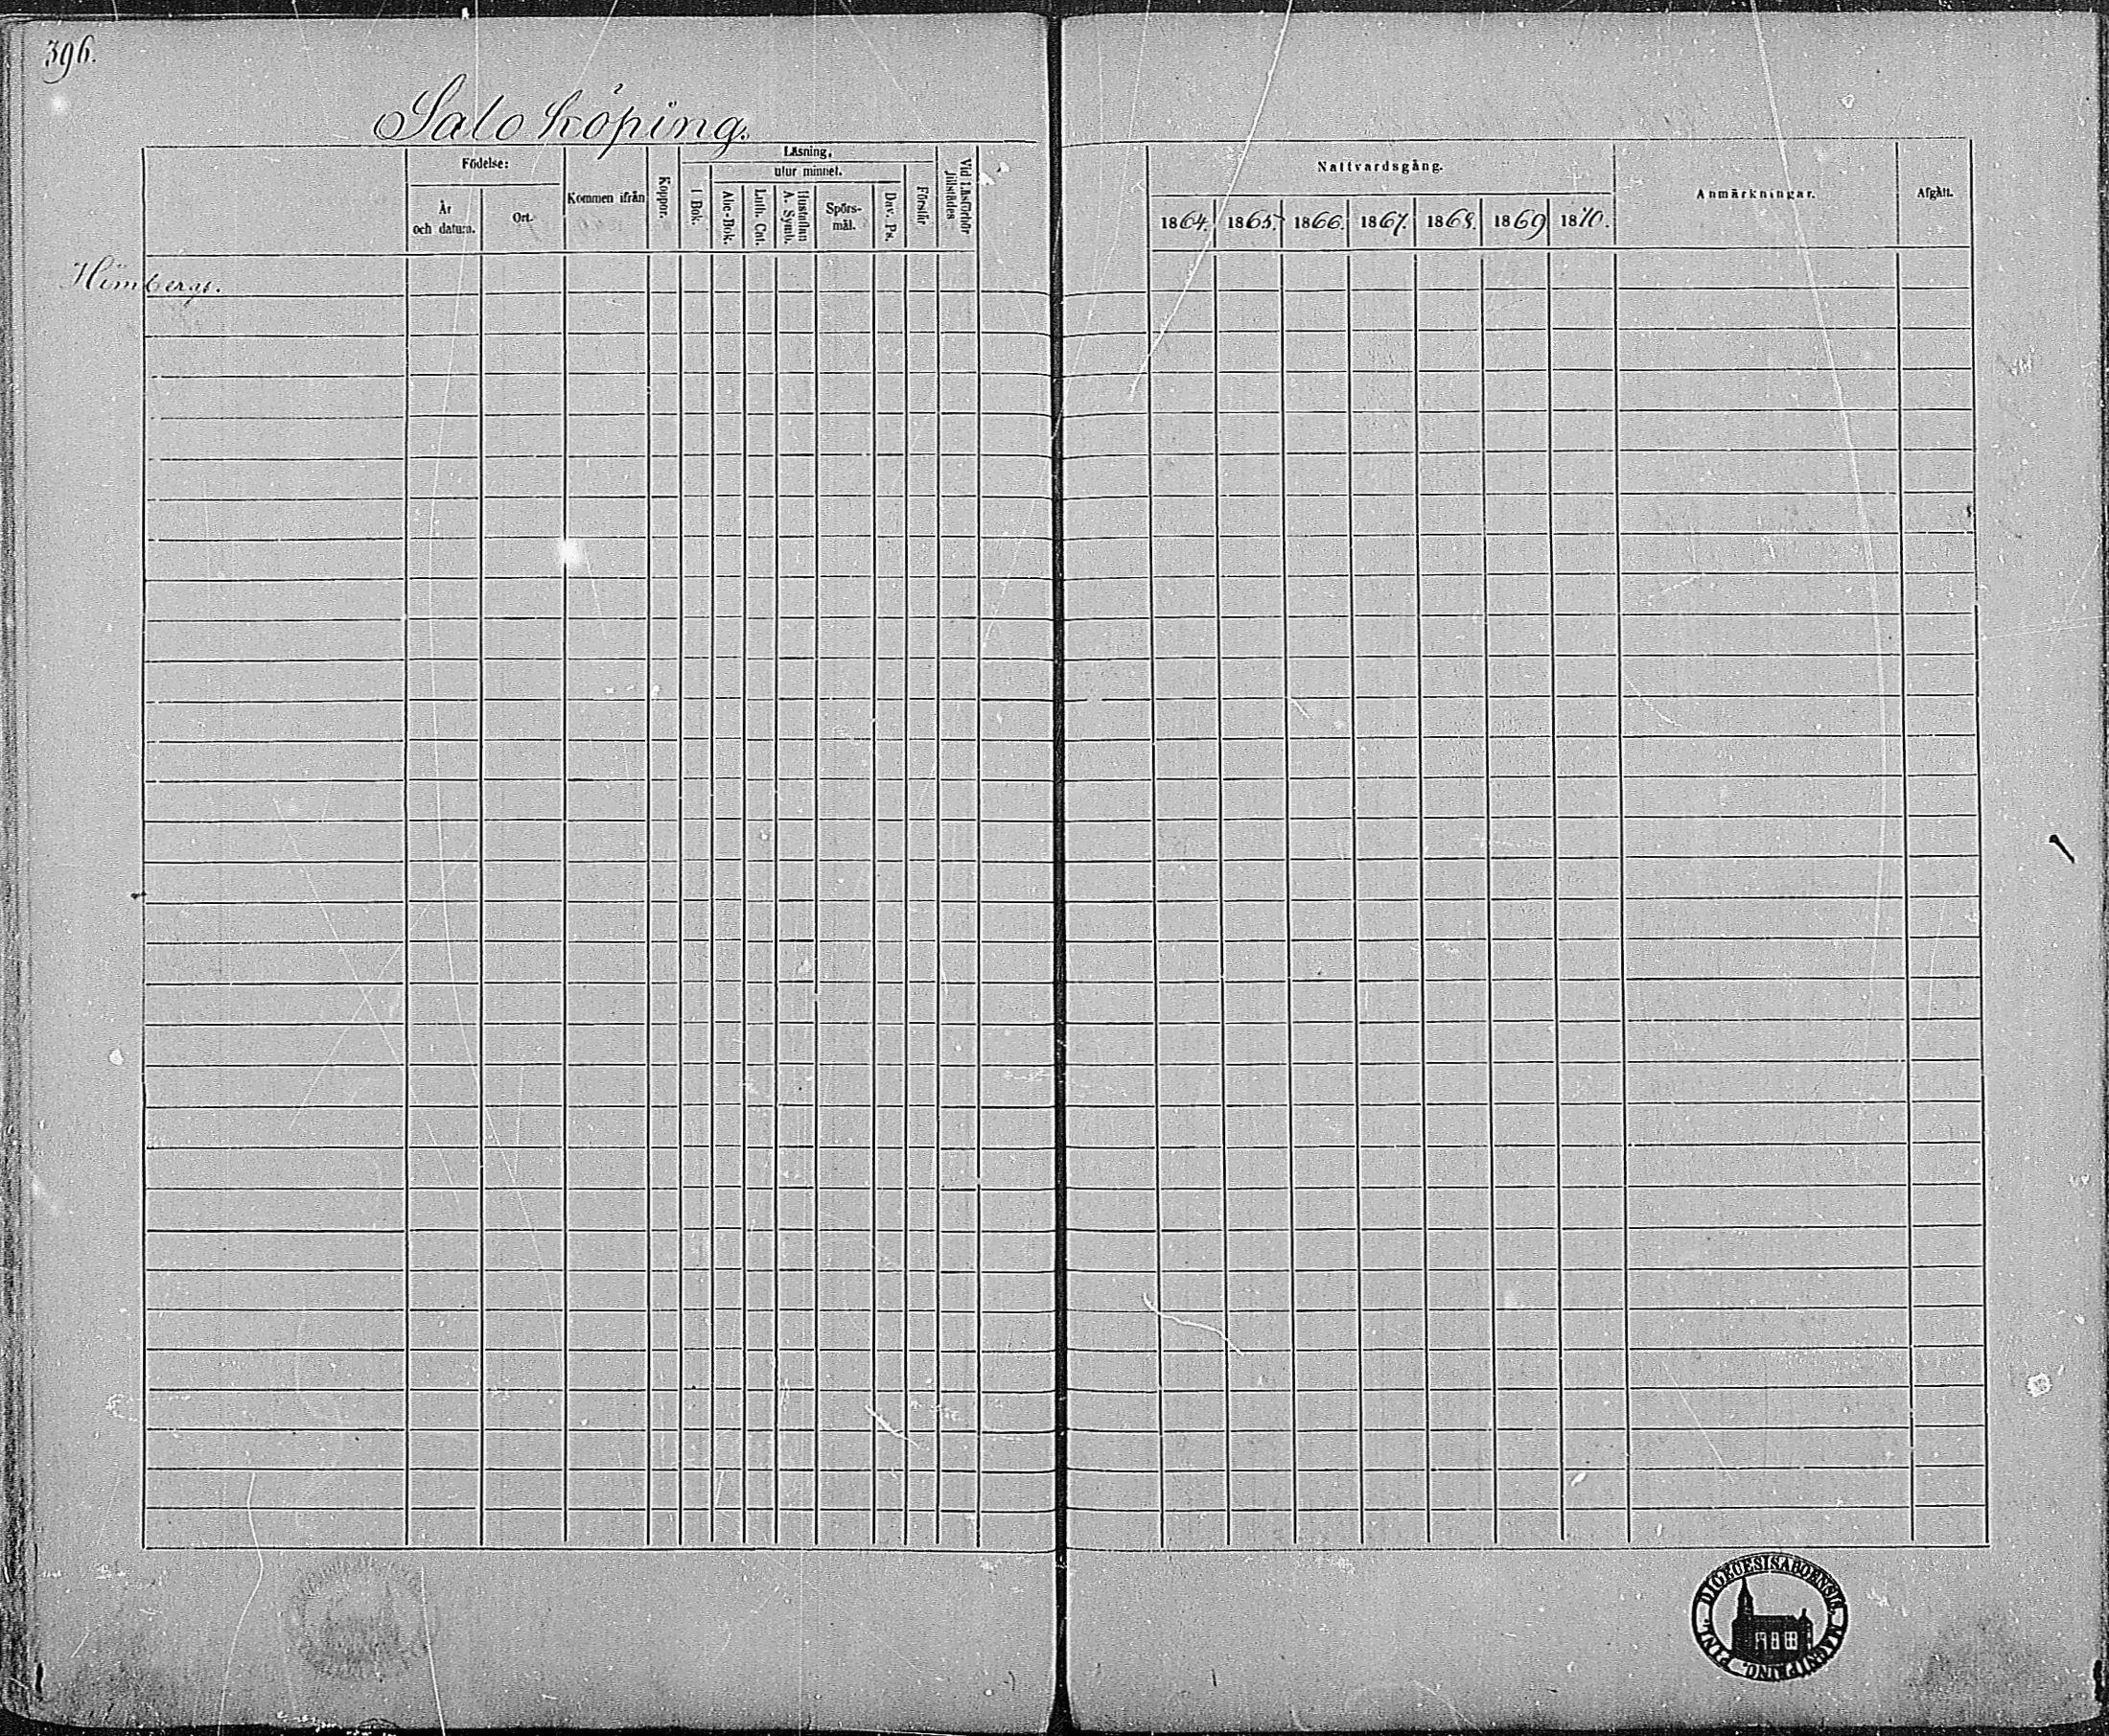 396.
Salo köping.
Födelse:
År
och datum.
Ort.
Kommen ifrån
Koppor.
Läsning,
utur minnet.
I Bok.
Abc-Bok.
Luth. Cat.
Hustaflan
A. Symb.
Spörs-
mål.
Dav. Ps.
Förstår
Vid Läsförhör
tillstädes
Nattvardsgång.
1864.
1865.
1866.
1867.
1868.
1869
1870.
Anmärkningar.
Afgått.
DIOECESIS ABOENSIS. MAGNI PRINC. FINL.